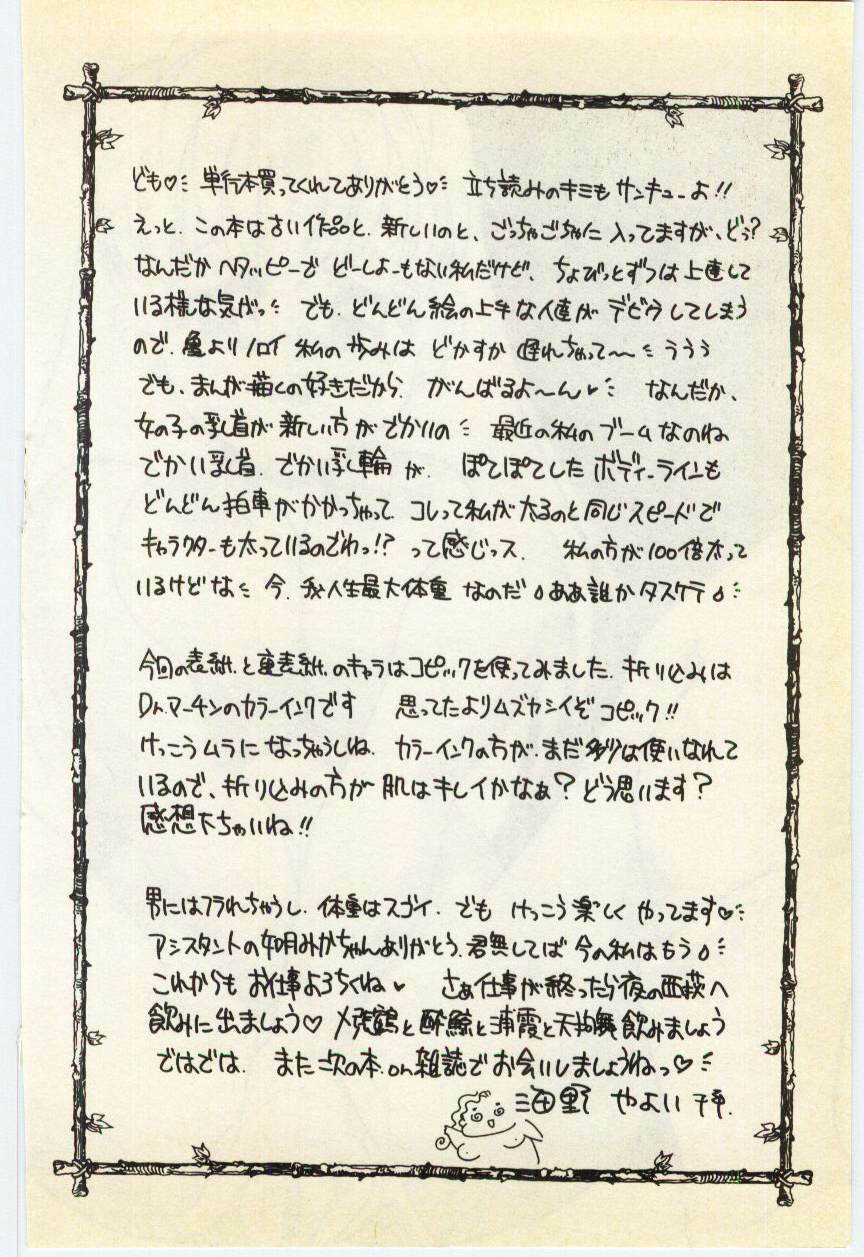 ども♡ 単行本買ってくれてありがとう♡ 立ち読みのキミも サンキューよ!!
えっと. この本は古い作品と. 新しいのと、ごっちゃごちゃに 入ってますが、どぅ?
なんだか ヘタッピーで どーしよーもない私だけど、 ちょびっとずつは上達して
いる様な気がっ でも. どんどん絵の上手な人達が デビウしてしまう
ので. 亀よりノロイ 私の歩みは どかすか 遅れちゃって〜 ううう
でも、まんが描くの好きだから. がんばるよ〜ん♥ なんだか、
女の子の乳首が 新しい方がでかいの 最近の私の ブームなのね
でかい乳首. でかい乳輪 が. ぽてぽてした ボディーラインも
どんどん拍車がかかっちゃって. コレって私が太るのと同じスピードで
キャラクターも太っているのでわっ!? って感じっス. 私の方が100倍太って
いるけどな 今. 我人生最大体重 なのだ ああ誰かタスケテ
今回の表紙.と裏表紙.のキャラはコピックを使ってみました. 折り込みは
Dr.マーチンのカラーインクです 思ってたよりムズカシイぞ コピック!!
けっこう ムラに なっちゃうしね. カラーインクの方が.まだ 多少は使いなれて
いるので、折り込みの方が 肌はキレイかなぁ? どう思います?
感想下ちゃいね!!
男にはフラれちゃうし. 体重はスゴイ. でも けっこう 楽しく やってます♡
アシスタントの如月みかちゃんありがとう. 君無してば 今の私はもう
これからも お仕事よろちくね♥ さぁ仕事が終ったら夜の西荻へ
飲みに出ましょう♡ 〆張鶴と酔鯨と浦霞と天狗舞 飲みましょう
ではでは. また次の本.on雑誌で お会いしましょうねっ♡
海野 やよい 拝.